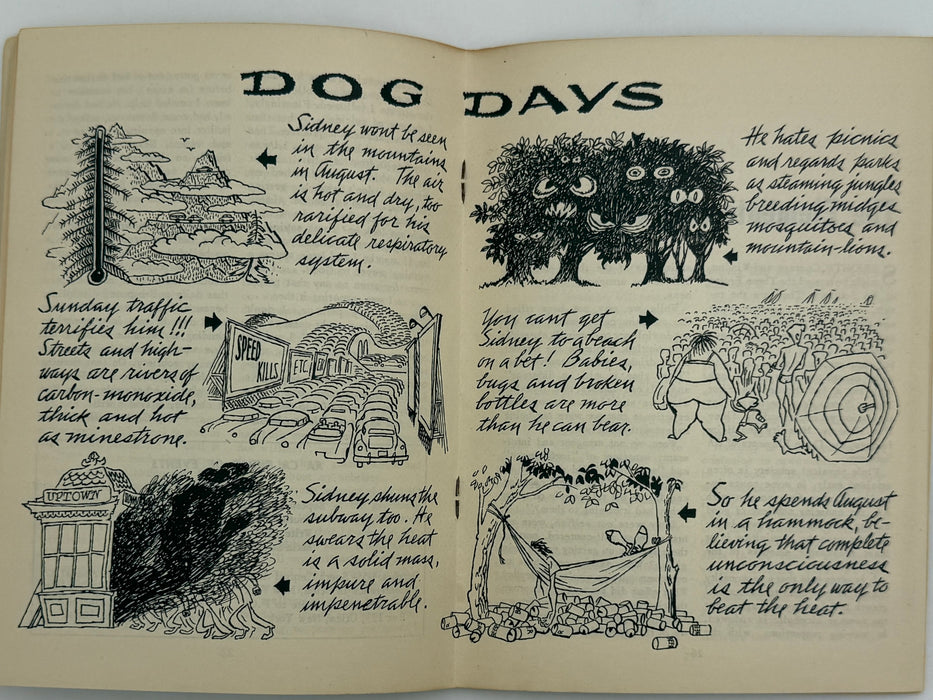 DOG DAYS
Sidney wont be seen
in the mountains
in August. The air
is hot and dry, too
rarified for his
delicate respiratory
system.
Sunday traffic
terrifies him !!!
Streets and high-
ways are rivers of
carbon-monoxide,
thick and hot
as minestrone.
SPEED
KILLS
ETC.
UPTOWN
Sidney shuns the
subway too. He
swears the heat
is a solid mass,
impure and
impenetrable.
He hates picnics
and regards parks
as steaming jungles
breeding midges
mosquitoes and
mountain-lions.
You cant get
Sidney to a beach
on a bet! Babies,
bugs and broken
bottles are more
than he can bear.
So he spends August
in a hammock, be-
lieving that complete
unconsciousness
is the only way to
beat the heat.